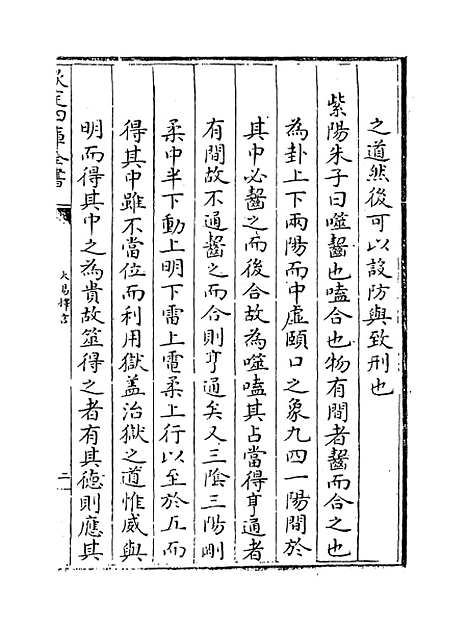 之道然後可以設防與致刑也
紫陽朱子曰噬齧也嗑合也物有間者齧而合之也
為卦上下兩陽而中虛頤口之象九四一陽間於
其中必齧之而後合故為噬嗑其占當得亨通者
有間故不通齧之而合則亨通矣又三陰三陽剛
柔中半下動上明下雷上電柔上行以至於五而
得其中雖不當位而利用獄蓋治獄之道惟威與
明而得其中之為貴故筮得之者有其德則應其
欽定四庫全書
大易擇言
二